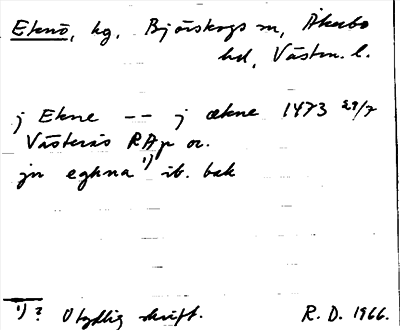 Eknö, hg, Björskogs sn, Åkerbo
hd, Västm. l.
j Ekne -- j ækne 1473 29/7
Västerås RAp or.
jn eghna 1) ib. bak
1) ? Otydlig skrift. R. D. 1966.